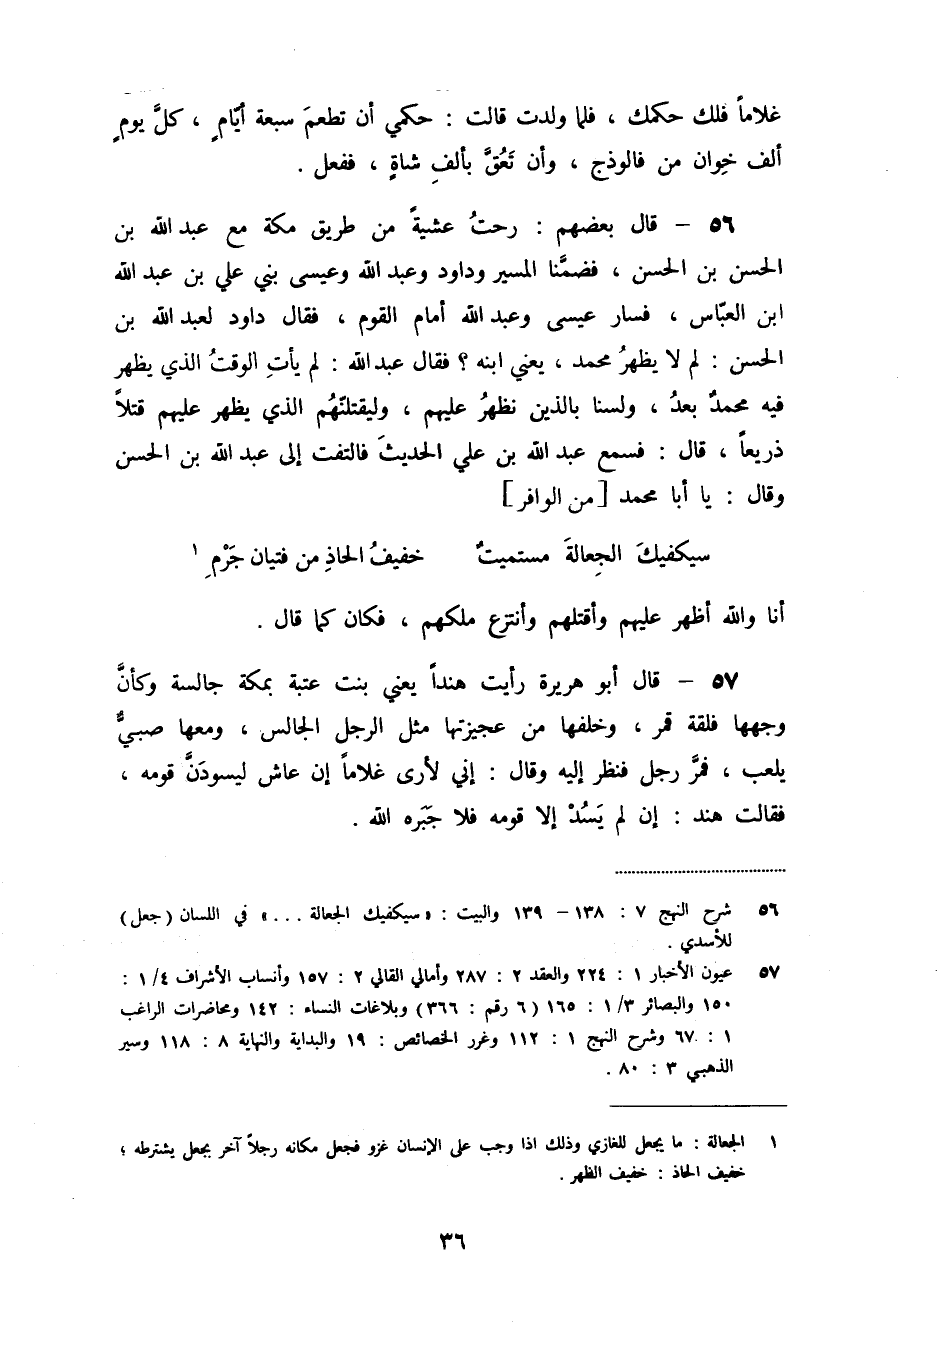 غلاماً فلك حكمك ، فلما ولدت قالت : حكمي أن تطعمَ سبعة أيّامٍ ، كلَّ يومٍ
ألف خِوان من فالوذج ، وأن تَعُقَّ بألفِ شاةٍ ، ففعل .
٥٦ – قال بعضهم : رحتُ عشيةً من طريق مكة مع عبد الله بن
الحسن بن الحسن ، فضمَّنا المسير وداود وعبد الله وعيسى بني علي بن عبد الله
ابن العبّاس ، فسار عيسى وعبد الله أمام القوم ، فقال داود لعبد الله بن
الحسن : لم لا يظهرُ محمد ، يعني ابنه ؟ فقال عبد الله : لم يأتِ الوقتُ الذي يظهر
فيه محمدٌ بعدُ ، ولسنا بالذين نظهرُ عليهم ، وليقتلنّهُم الذي يظهر عليهم قتلاً
ذريعاً ، قال : فسمع عبد الله بن علي الحديثَ فالتفت إلى عبد الله بن الحسن
وقال : يا أبا محمد [من الوافر]
سيكفيكَ الجِعالةَ مستميتٌ خفيفُ الحاذِ من فتيان جَرْمِ ١
أنا والله أظهر عليهم وأقتلهم وأنتزع ملكهم ، فكان كما قال .
٥٧ – قال أبو هريرة رأيت هنداً يعني بنت عتبة بمكة جالسة وكأنَّ
وجهها فلقة قمر ، وخلفها من عجيزتها مثل الرجل الجالس ، ومعها صبيٌّ
يلعب ، فمرَّ رجل فنظر إليه وقال : إني لأرى غلاماً إن عاش ليسودَنَّ قومه ،
فقالت هند : إن لم يَسُدْ إلا قومه فلا جَبَره الله .
٥٦ شرح النهج ٧ : ١٣٨ – ١٣٩ والبيت : «سيكفيك الجعالة ...» في اللسان (جعل)
للأسدي .
٥٧ عيون الأخبار ١ : ٢٢٤ والعقد ٢ : ٢٨٧ وأمالي القالي ٢ : ١٥٧ وأنساب الأشراف ٤/ ١ :
١٥٠ والبصائر ٣/ ١ : ١٦٥ (٦ رقم : ٣٦٦) وبلاغات النساء : ١٤٢ ومحاضرات الراغب
١ : ٦٧ وشرح النهج ١ : ١١٢ وغرر الخصائص : ١٩ والبداية والنهاية ٨ : ١١٨ وسير
الذهبي ٣ : ٨٠ .
١ الجعالة : ما يجعل للغازي وذلك اذا وجب على الإنسان غزو فجعل مكانه رجلاً آخر بجعل يشترطه ؛
خفيف الحاذ : خفيف الظهر .
٣٦